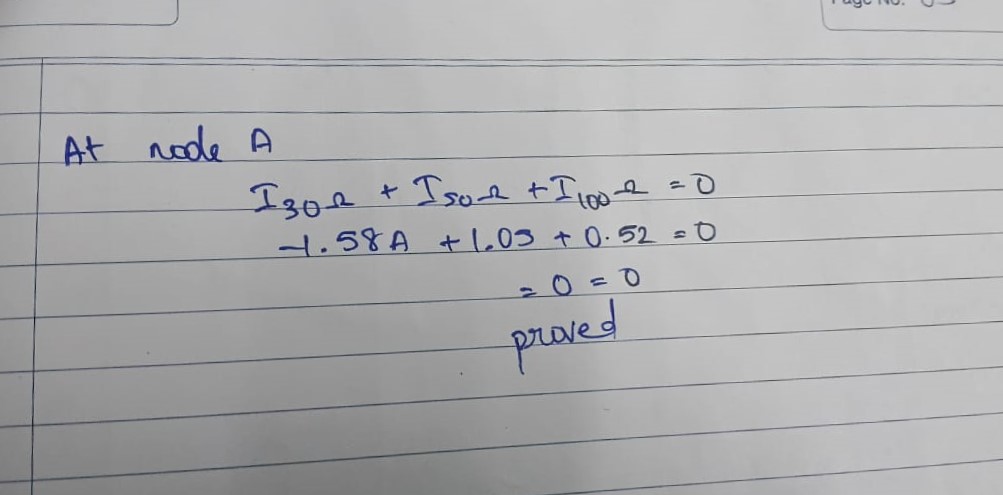 At node A
I30Ω + I50Ω + I100Ω = 0
-1.58A + 1.03 + 0.52 = 0
= 0 = 0
proved